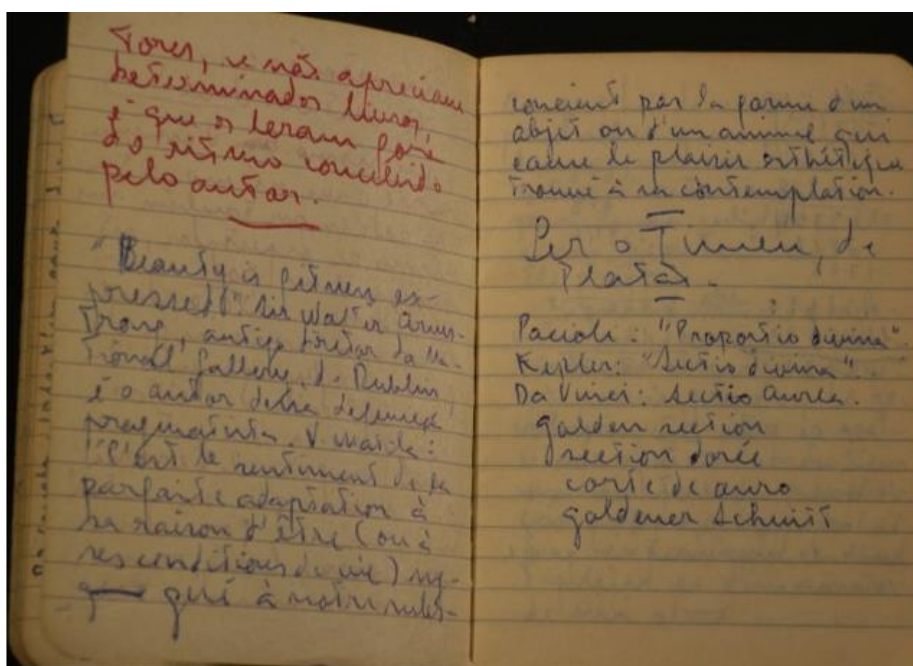 tores, e não apreciam
determinados livros,
é que os leram fora
do ritmo concebido
pelo autor.
"Beauty is fitness ex-
pressed": Sir Walter Arms-
trong, antigo diretor da Na-
tional Gallery, de Dublin
é o autor dessa definição
pragmatista. V. mais :
"C'est le sentiment de la
parfaite adaptation à
sa raison d'être (ou à
ses conditions de vie) su-
géré à notre subs-
concient par la forme d'un
objet ou d'un animé qui
cause le plaisir esthétique
trouvé à sa contemplation.
Ler o Timeu, de
Platão.
Pacioli : "Proportio divina"
Kepler: "Sectio divina"
Da Vinci: Sectio Aurea.
golden section
section dorée
corte de ouro
goldener Schnitt